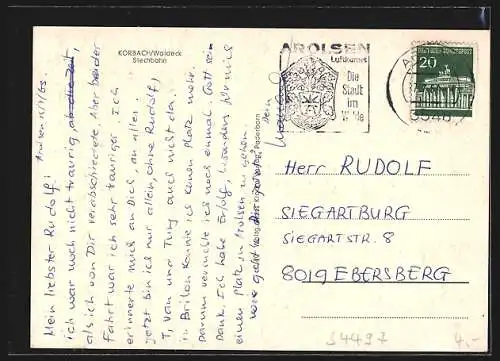 KORBACH/Waldeck
Stechbahn
Arolsen 15/1/69
Mein liebster Rudolf!
ich war noch nicht traurig, als
als ich von Dir verabschiedete. Aber bei der
Fahrt war ich sehr trauriger. Ich
erinnerte mich an Dich, an allen.
jetzt bin ich nur allein, ohne Rudolf!,
T, Van und Tung auch nicht da.
in Brilon konnte ich keinen Platz mehr.
Darum versuchte ich noch einmal. Gott sei
Dank. Ich habe Erfolg, besonders
einen Platz in Arolsen zu gehen.
Dein
Paderborn
AROLSEN
Luftkurort
Die
Stadt
im
DEUTSCHE BUNDESPOST
20
Herr RUDOLF
SIEGARTBURG
SIEGARTSTR. 8
8019 EBERSBERG
S4497
4,-